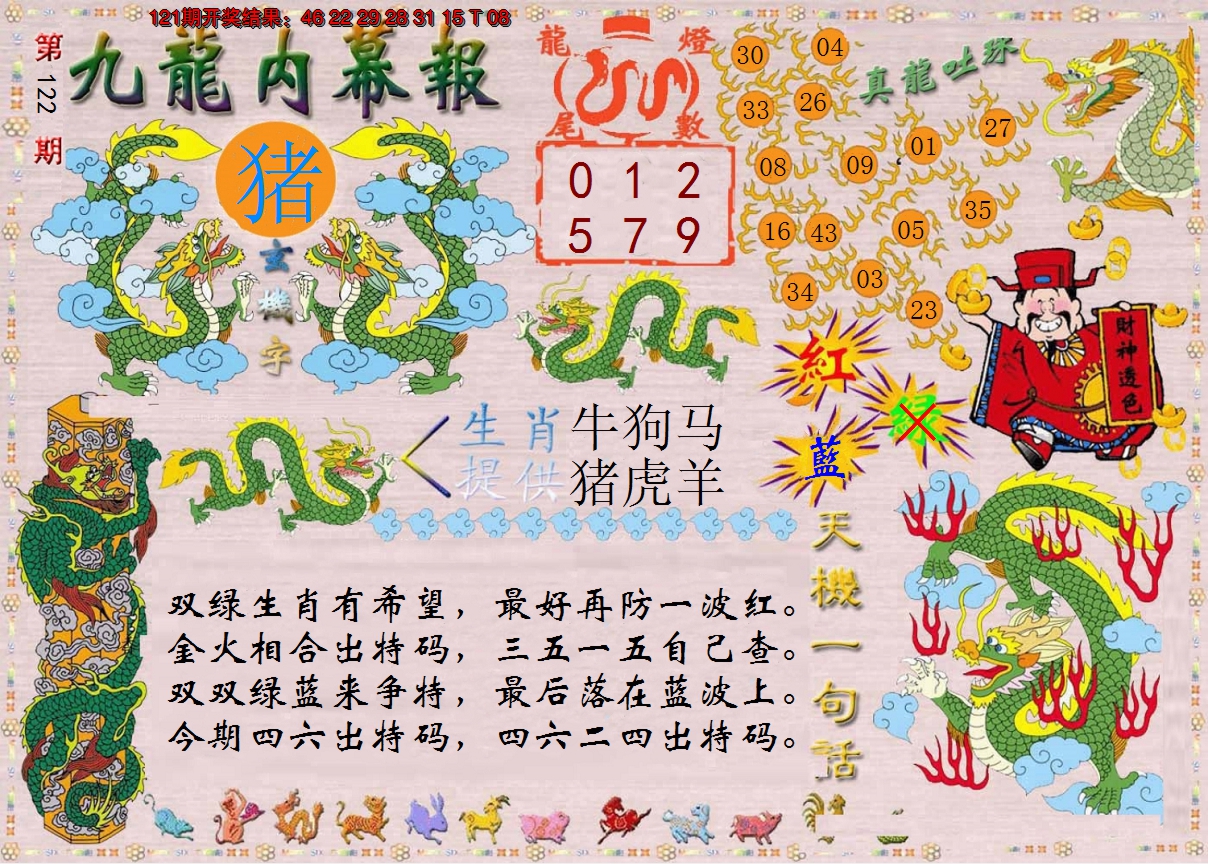 121期开奖结果：46 22 29 28 31 15 T 08
第122期
九龍内幕報
猪
玄機字
龍燈
尾數
0 1 2
5 7 9
真龍吐珠
30 04
33 26
01 27
08 09
35
16 43 05
34 03
23
財神透色
紅
绿
藍
生肖 牛狗马
提供 猪虎羊
天機一句話
双绿生肖有希望，最好再防一波红。
金火相合出特码，三五一五自己查。
双双绿蓝来争特，最后落在蓝波上。
今期四六出特码，四六二四出特码。